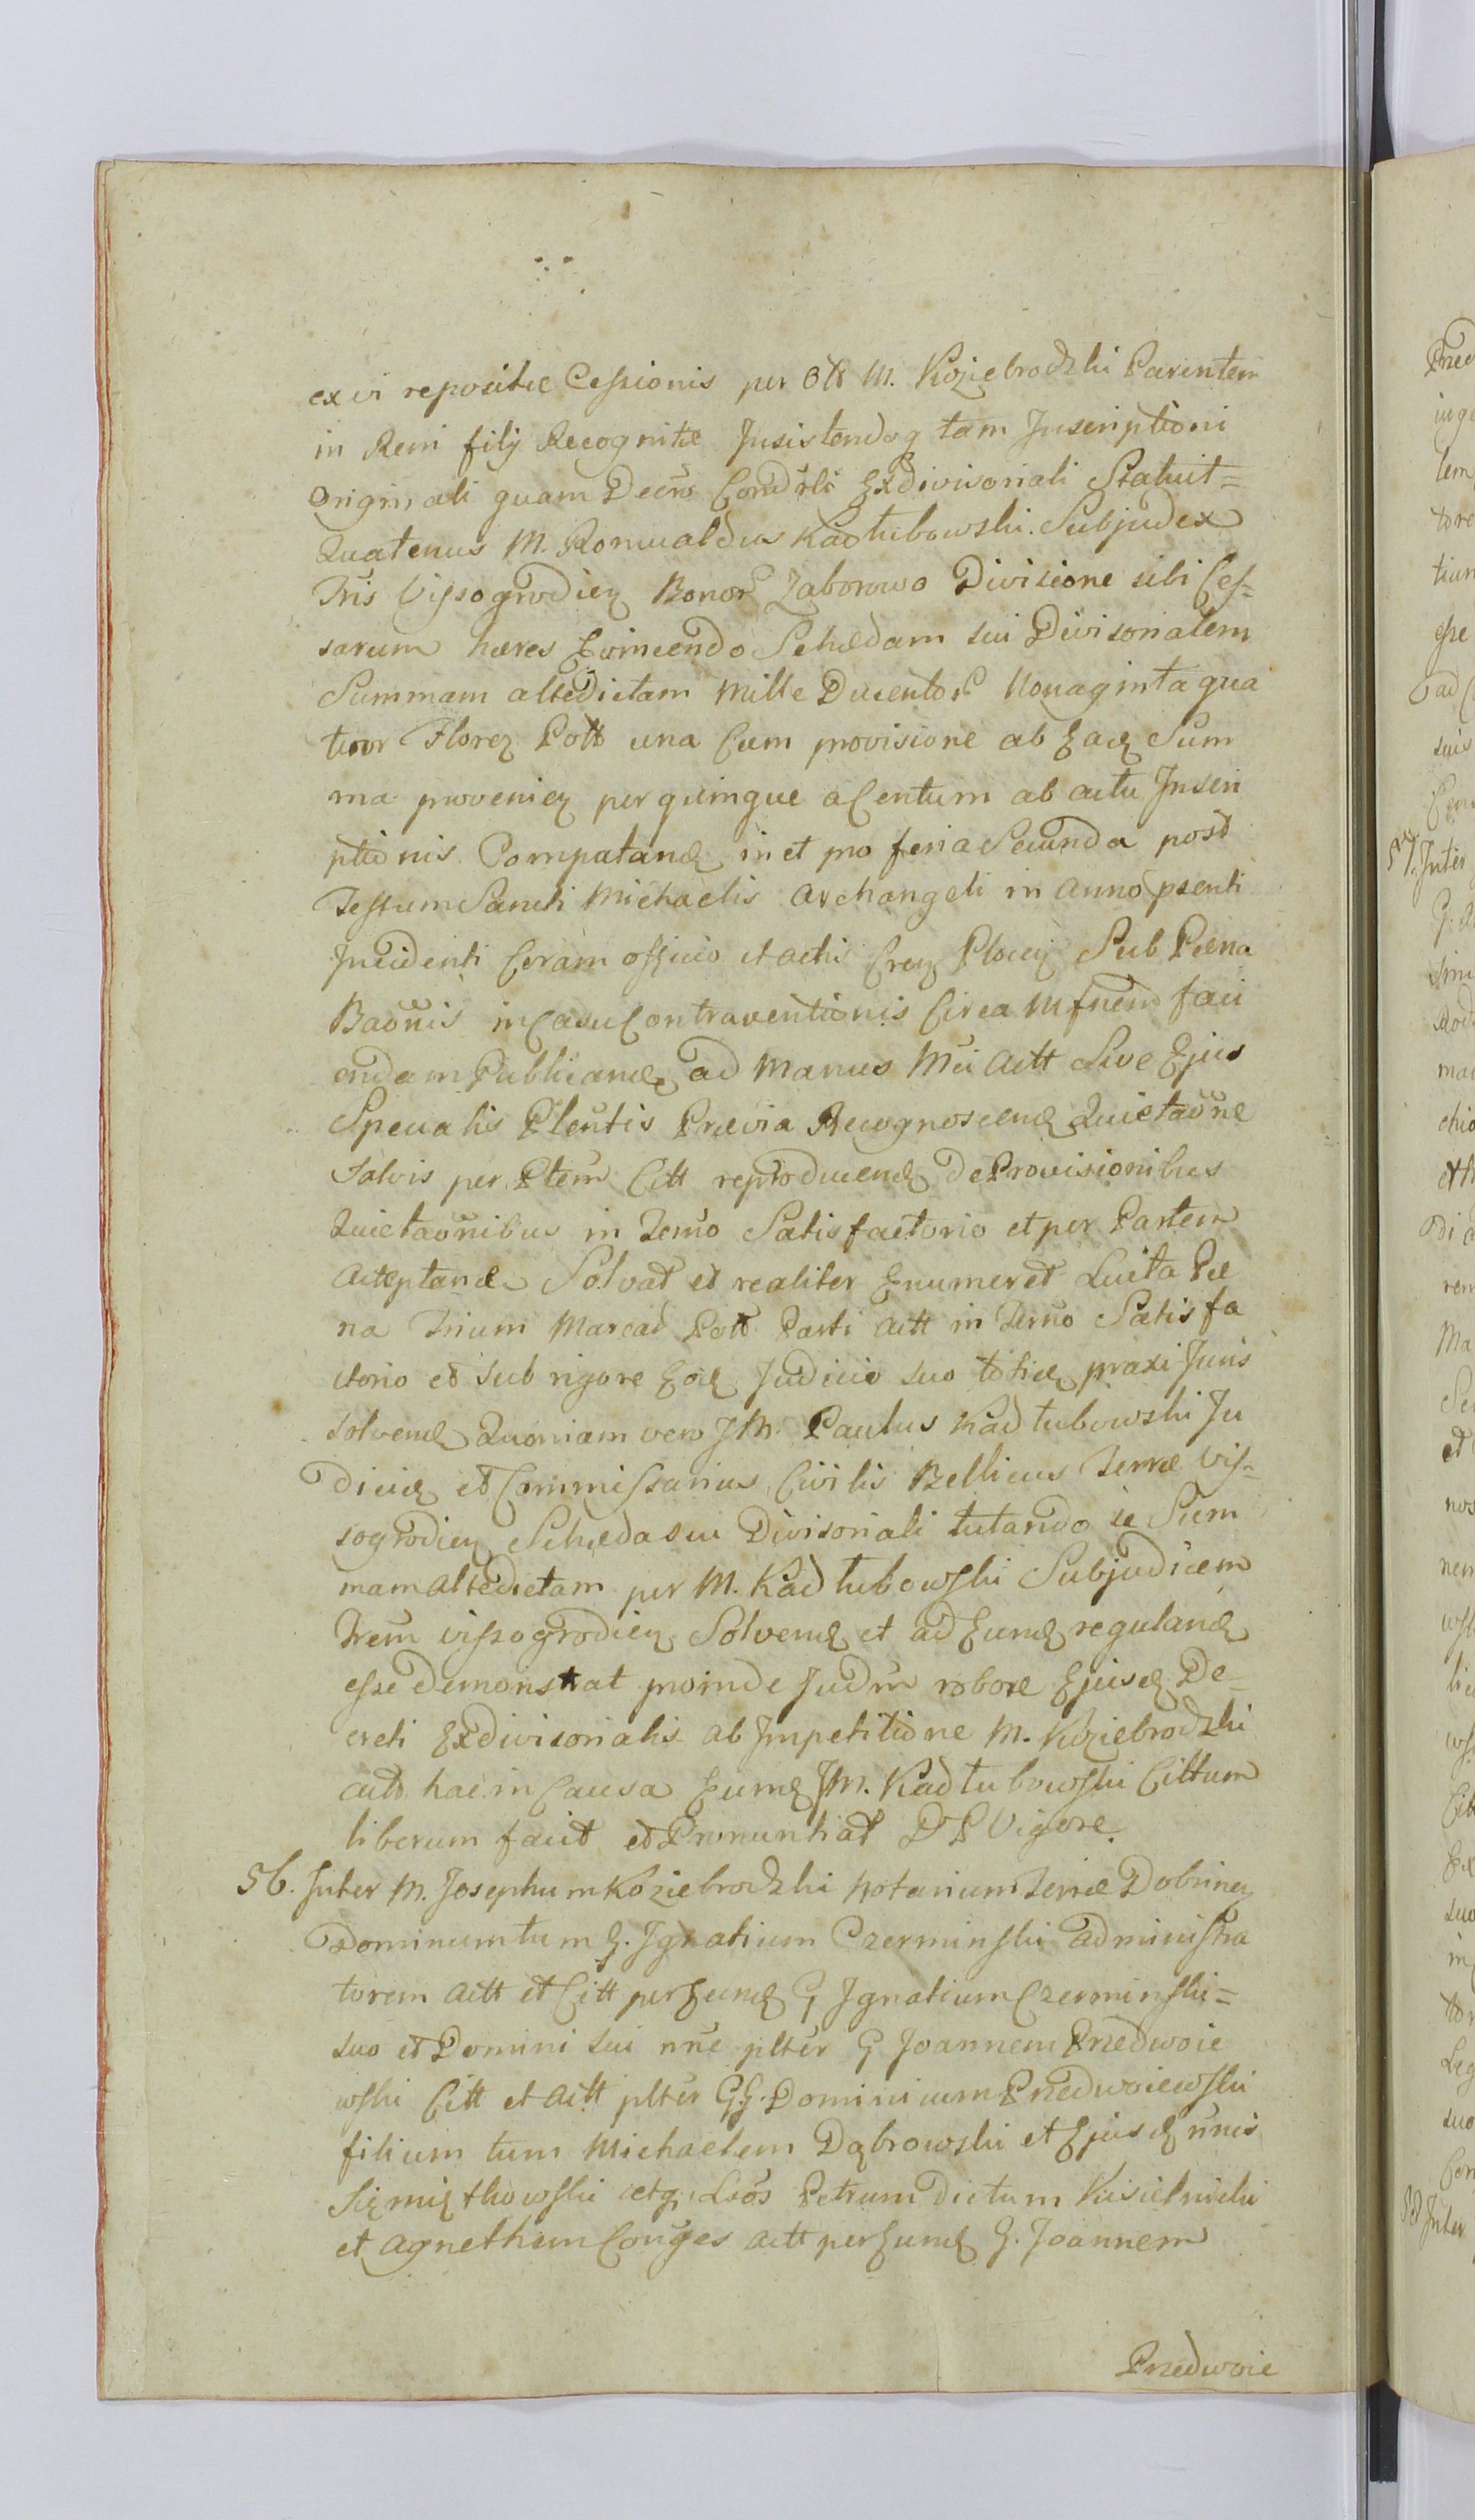 ex vi repositæ Cessionis per Olb M. Koziebrodzki Parentem
in Rem filij Recognitæ Insistendoq tam Inscriptioni
Originali quam Decro Condrli Exdivisoriali Statuit=
Quatenus M. Romualdus Kadłubowski Subjudex
Tris Vissogrodien Bonor Zaborowo Divisione sibi Ces=
sarum hæres Evincendo Schedam sui Divisorialem
Summam altedictam Mille Ducentor Nonaginta qua
tuor Floren Poll una Cum provisione ab Eadem Sum
ma provenien per quinque a Centum ab actu Inscri
ptionis Computand in et pro feria Secunda post
Festum Sancti Michaelis Archangeli in Anno psenti
Incidenti Coram officio et actis Cren Plocen Sub Pæna
Baonis in Casu Contraventionis Circa M fnem faci
endam Publicand ad Manus Mci Actt Sive Ejus
Specialis Plentis Prævia Recognoscend Quietaone
Salvis per Ptem Citt reproducend de Provisionibus
Quietaonibus in Termo Satisfactorio et per Partem
Acceptand Solvat et realiter Enumeret Luita Pæ
na Trium Marcar Poll Parti Actt in Termo Satisfa
ctorio et sub rigore Eod Judicio suo totied praxi Juris
solvend Quoniam vero JM. Paulus Kadłubowski Ju
dicid et Commissarius Civilis Bellicus Terræ Vis=
sogrodien Scheda sui Divisoriali tutando se Sum
mam altedictam per M. Kadłubowski Subjudicem
Trem vissogrodien Solvend et ad Eumd reguland
esse demonstrat proinde Judm robore Ejusd De=
creti Exdivisorialis ab Impetitione M. Koziebrodzki
actt hac in Causa Eumd JM. Kadłubowski Cittum
liberum facit et Pronuntiat D P Vigore
56. Inter M. Josephum Koziebrodzki Notarium Terræ Dobrinen
Dominum tum G. Ignatium Czerminski administra
torem actt et Citt per Eumd G Ignatium Czerminski=
suo et Domini sui nne plter G Joannem Przedwoie
wski Citt et actt plter G.G. Dominicum Przedwoiewski
filium tum Michaelem Dąbrowski et Ejusd nnis
Siemiętkowski atq Lsos Petrum dictum Kisielnicki
et Agnethem Conges actt per Eumd G. Joannem
Przedwoie